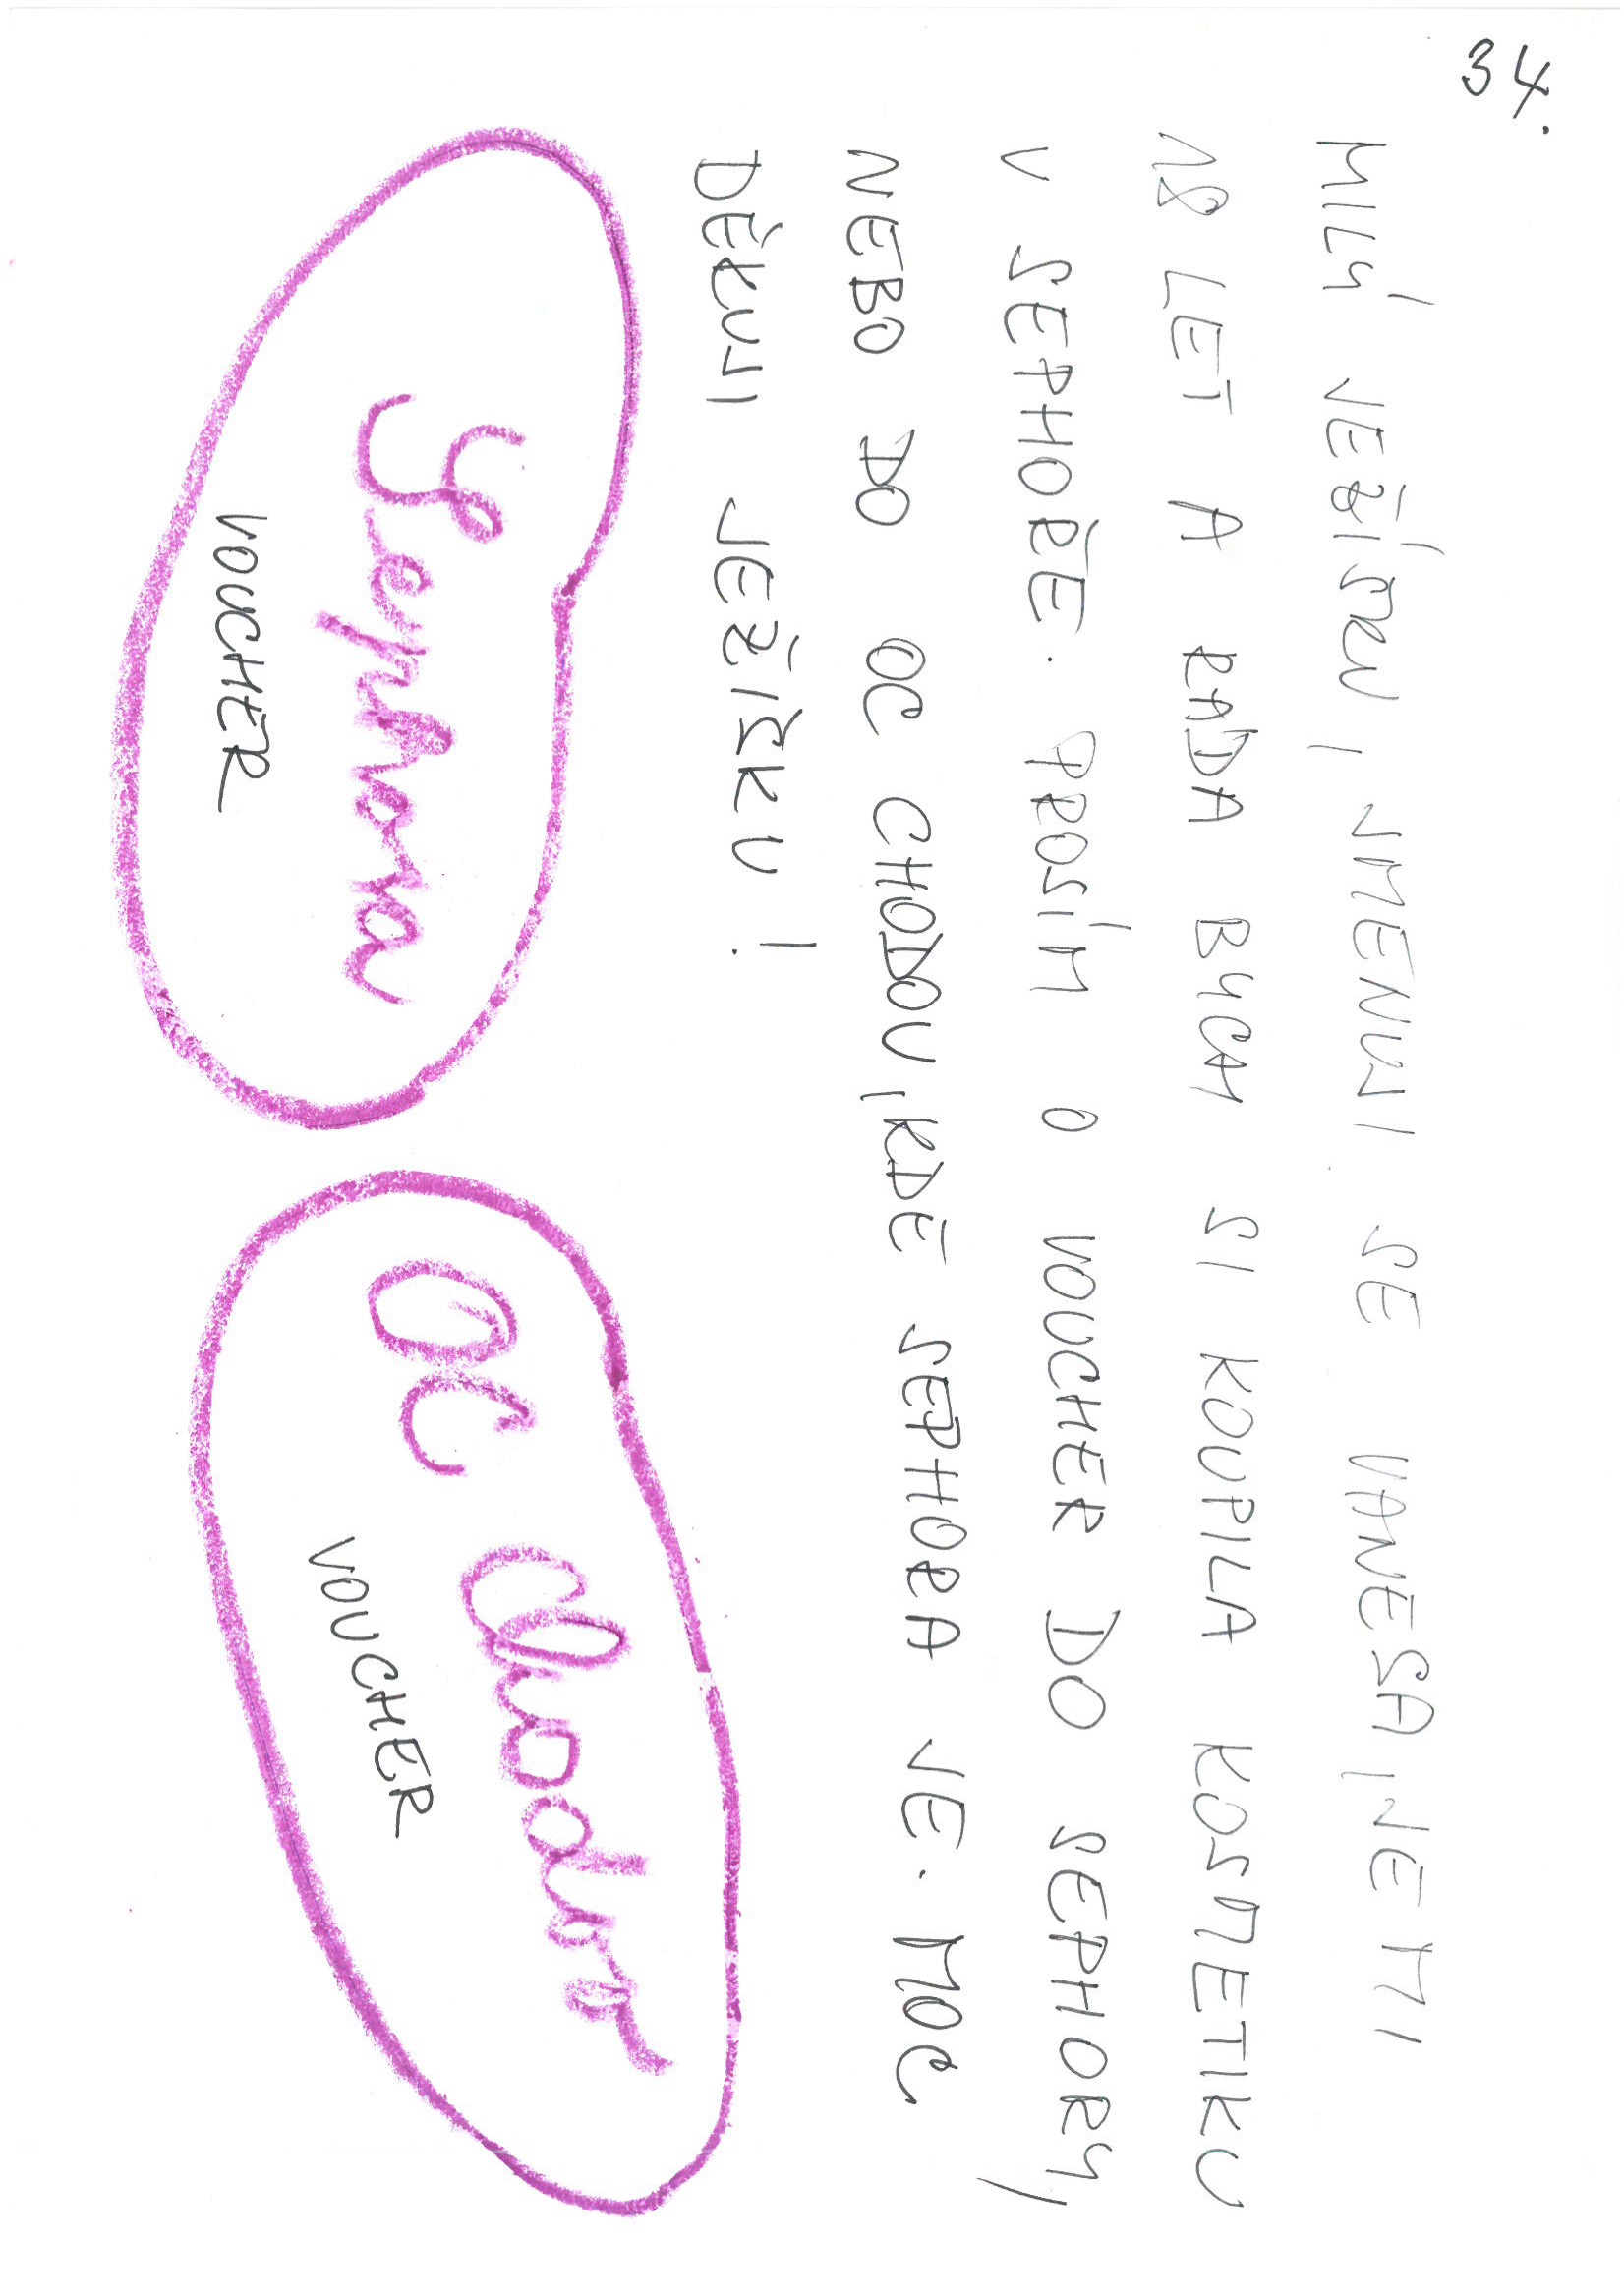 34.
MILÝ JEŽÍŠKU, JMENUJI SE VANESA, JE MI
18 LET A RÁDA BYCH SI KOUPILA KOSMETIKU
V SEPHOŘE. PROSÍM O VOUCHER DO SEPHORY,
NEBO DO OC CHODOV, KDE SEPHORA JE. MOC
DĚKUJI JEŽÍŠKU!
Sephora
VOUCHER
OC Chodov
VOUCHER